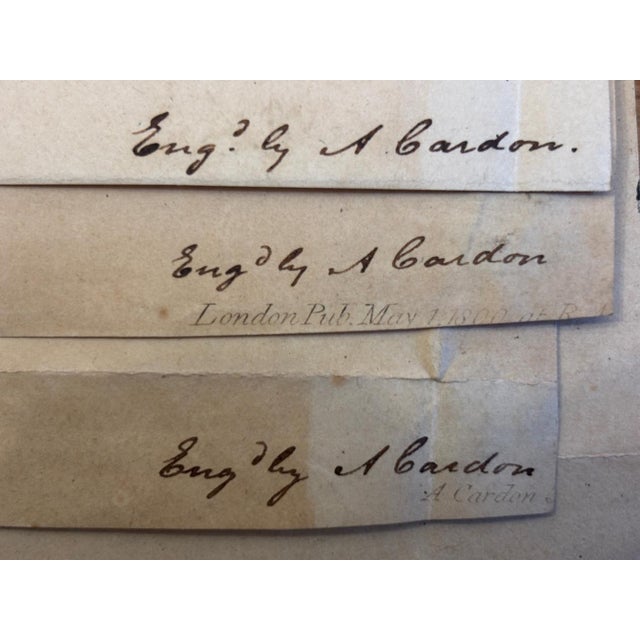 Eng.ᵈ by A Cardon.
Engᵈ by A Cardon
London Pub. May 1. 1800. at
Engᵈ by A Cardon
A Cardon